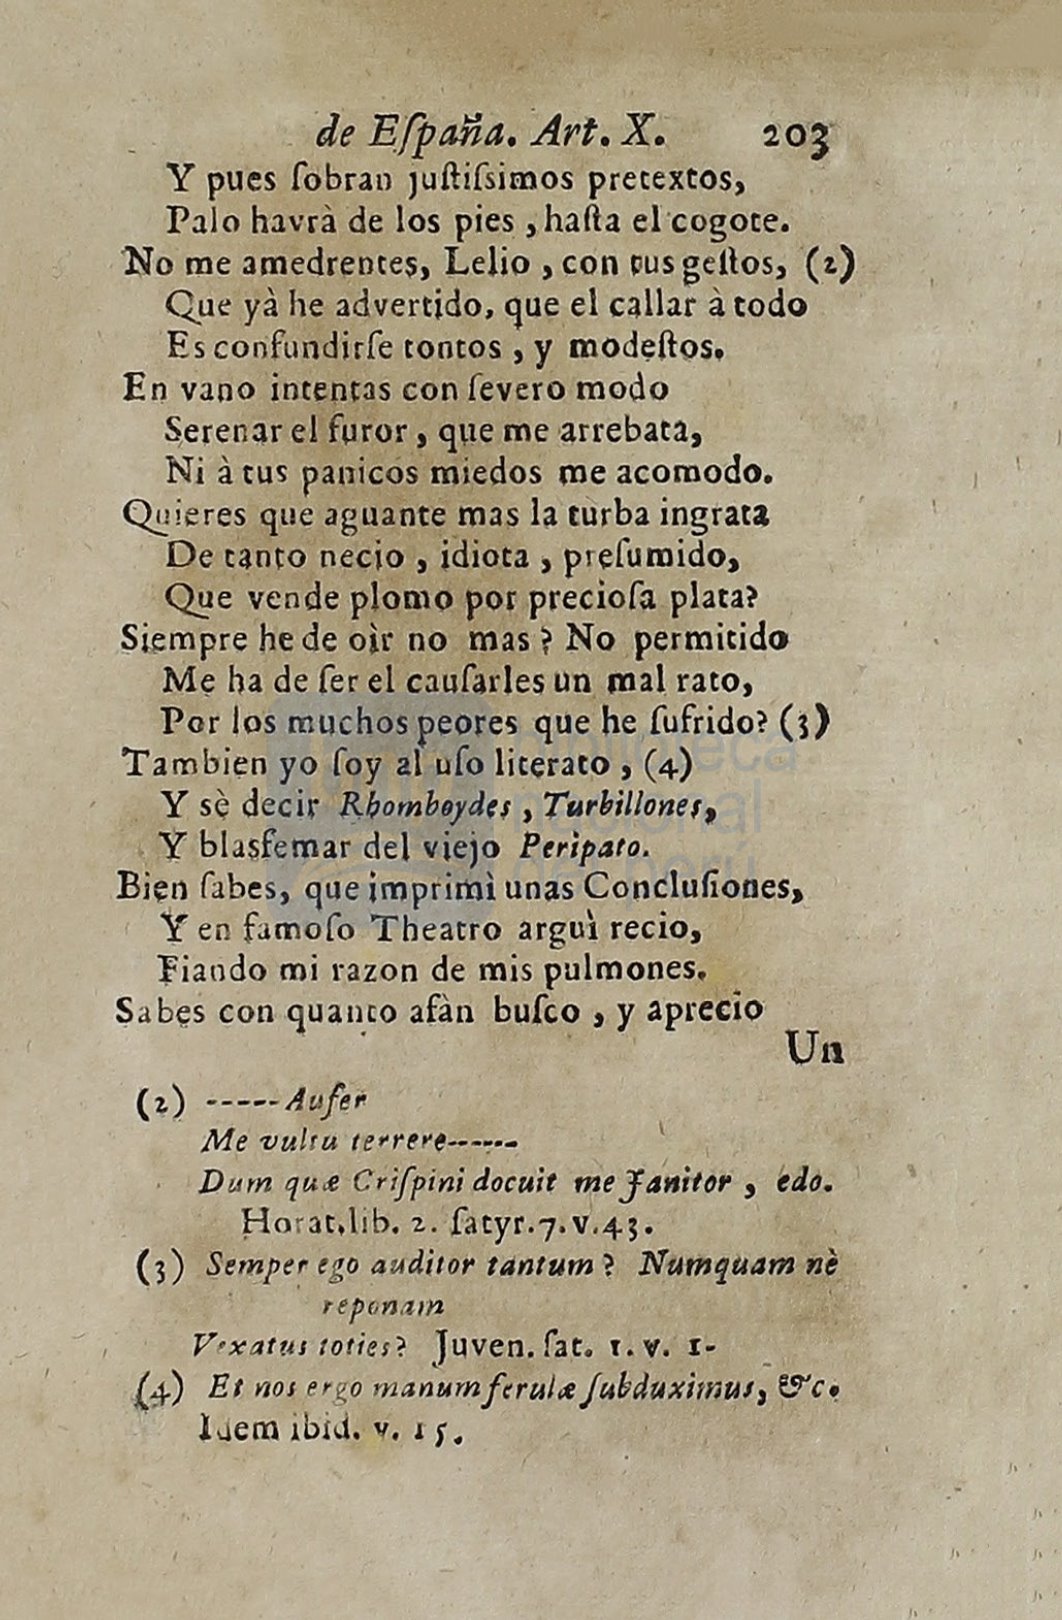 de Eſpaña. Art. X. 203
Y pues ſobran juſtiſsimos pretextos,
Palo havrà de los pies , haſta el cogote.
No me amedrentes, Lelio , con tus geſtos, (2)
Que yà he advertido, que el callar à todo
Es confundirſe tontos , y modeſtos.
En vano intentas con ſevero modo
Serenar el furor , que me arrebata,
Ni à tus panicos miedos me acomodo.
Quieres que aguante mas la turba ingrata
De tanto necio , idiota , preſumido,
Que vende plomo por precioſa plata?
Siempre he de oìr no mas ? No permitido
Me ha de ſer el cauſarles un mal rato,
Por los muchos peores que he ſufrido? (3)
Tambien yo ſoy al uſo literato , (4)
Y sè decir Rhomboydes , Turbillones,
Y blasfemar del viejo Peripato.
Bien ſabes, que imprimì unas Concluſiones,
Y en famoſo Theatro arguì recio,
Fiando mi razon de mis pulmones.
Sabes con quanto afàn buſco , y aprecio
Un
(2) -----Aufer
Me vultu terrere------
Dum quæ Criſpini docuit me Janitor , edo.
Horat.lib. 2. ſatyr.7.v.43.
(3) Semper ego auditor tantum ? Numquam nè
reponam
Vexatus toties? Juven. ſat. 1. v. 1-
(4) Et nos ergo manum ferulæ ſubduximus, &c.
Idem ibid. v. 15.
Biblioteca
nacional
del Perú